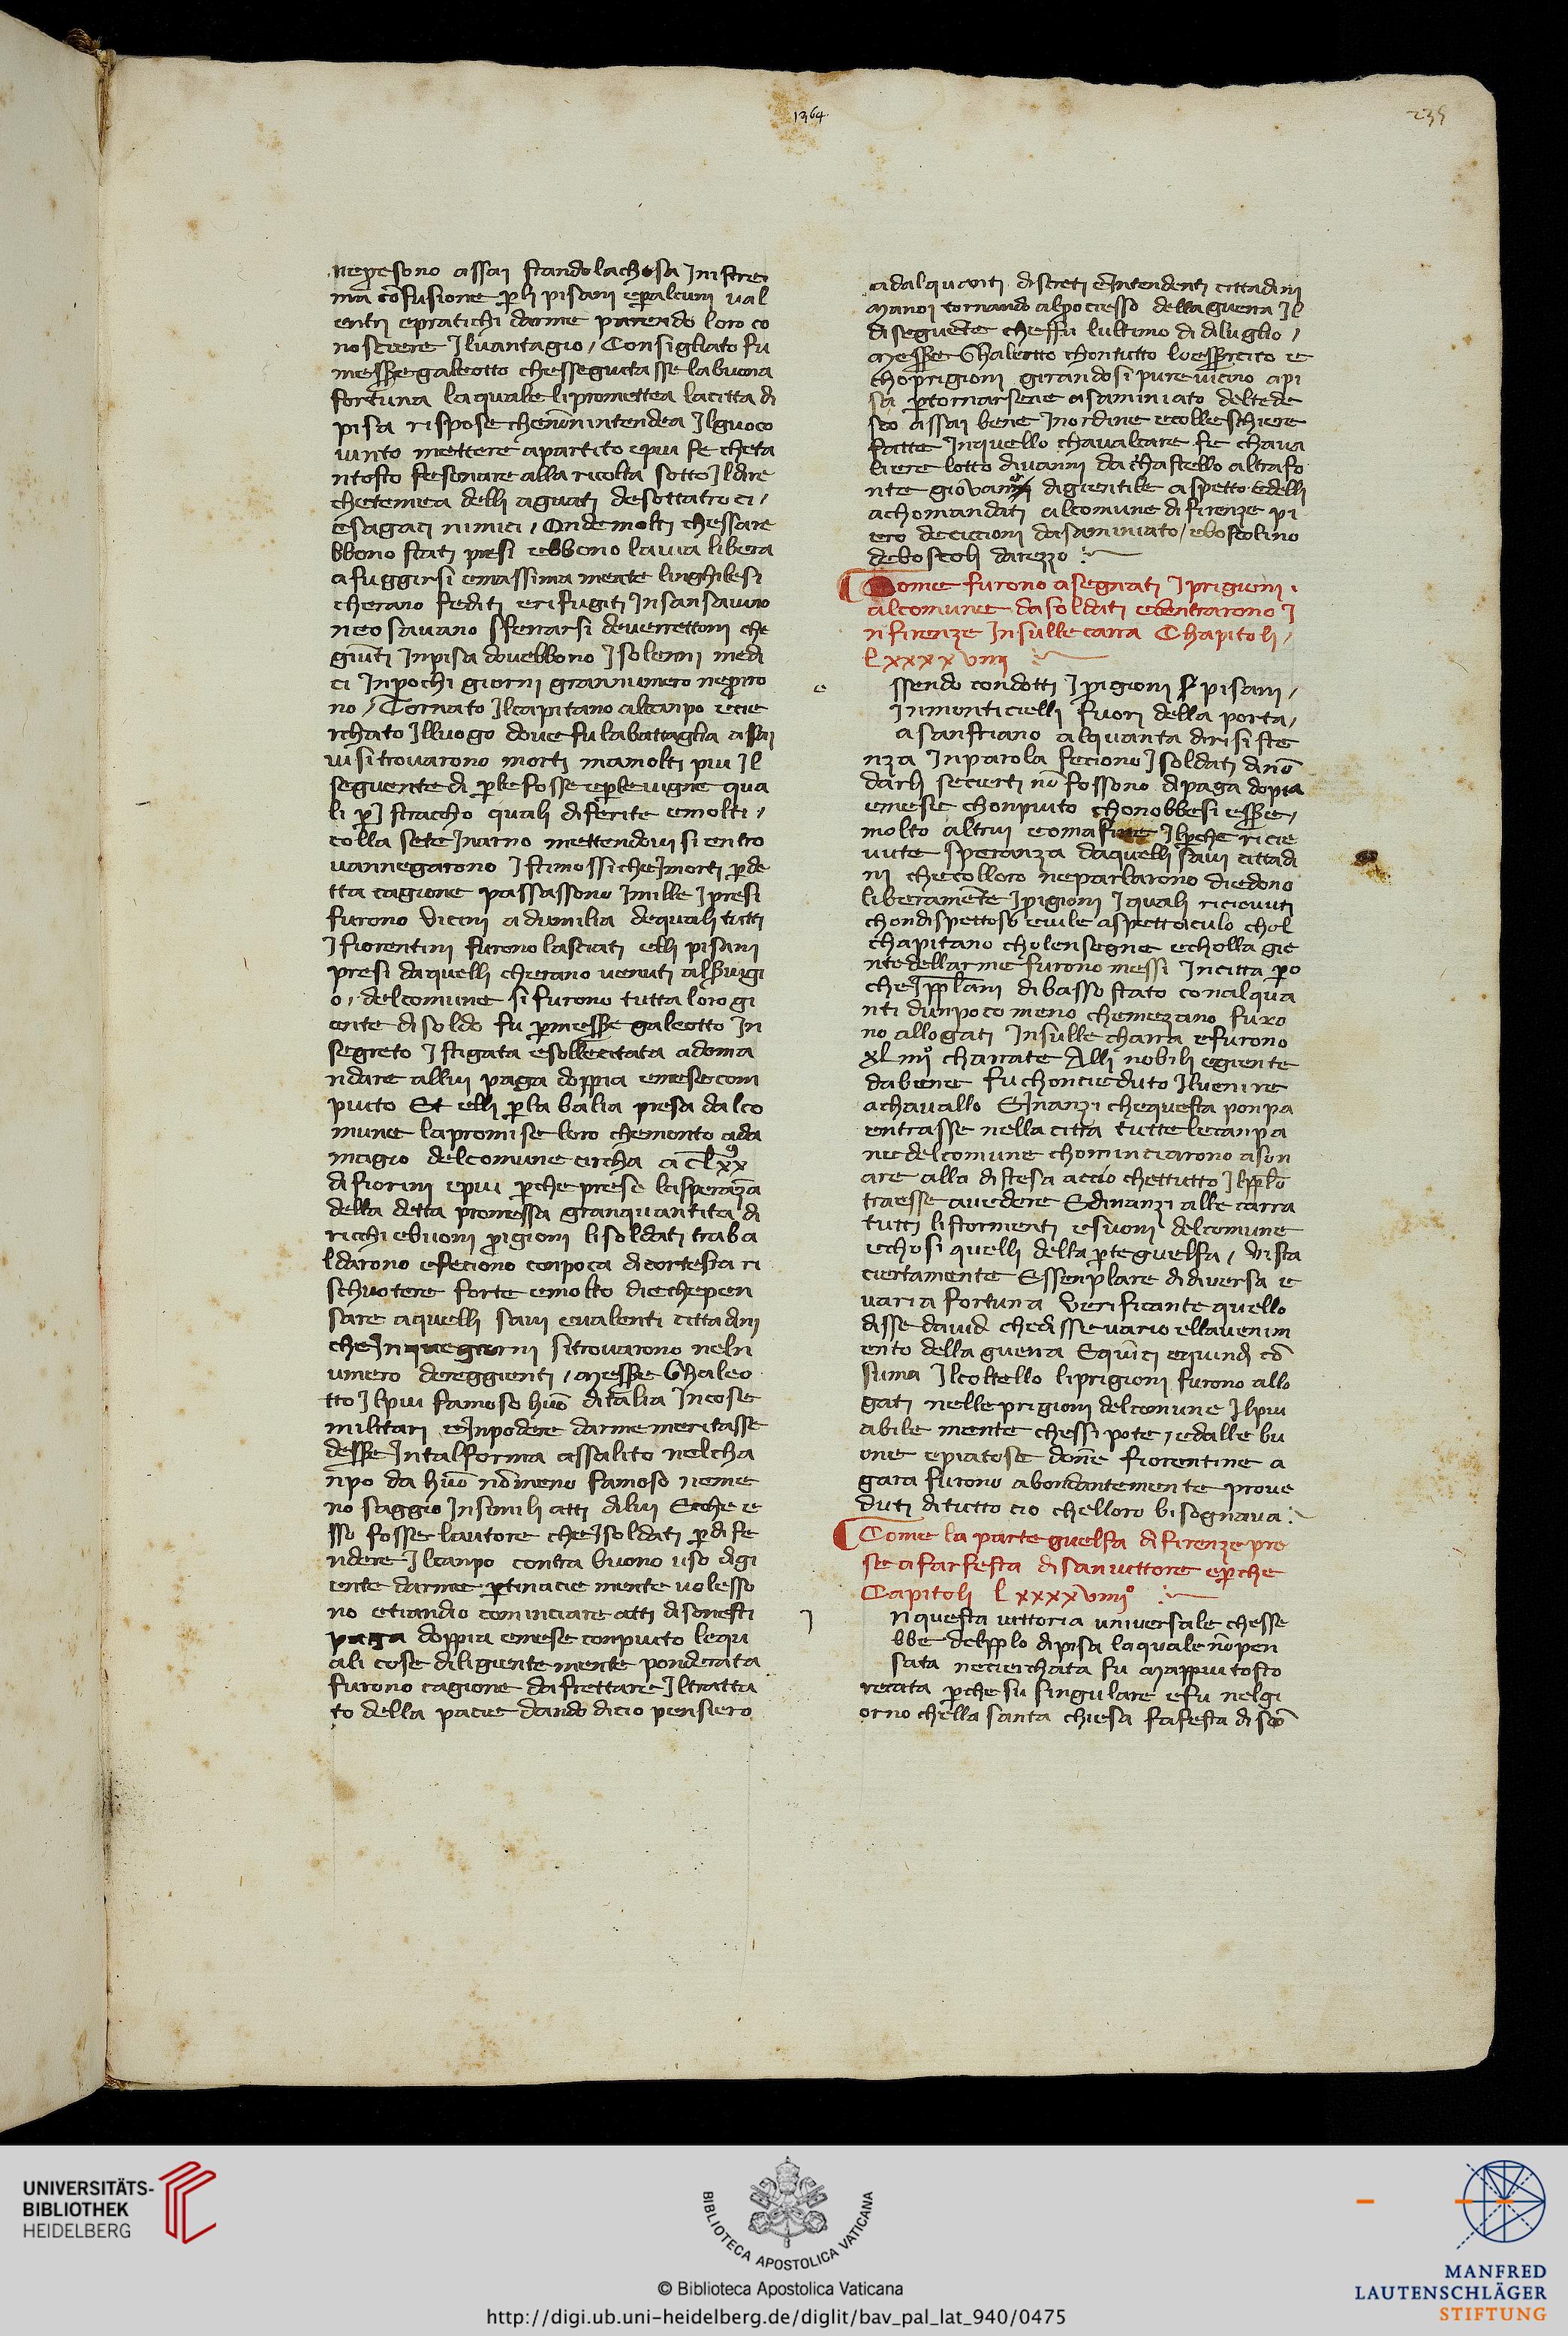 1364
235
nepesono assai stando lachosa Jnistre
ma cōfusione p̱ li pisani ep̱alcuni val
entri epratichi darme parendo loro co
noscere Jluantagio / Consigliato fu
mess̄egaleotto chesseguitasse labuona
fortuna laquale lipromettea lacitta di
pisa rispose chenōnintendea Jlguoco
vinto mettere apartito epiu fe cheta
ntosto fesonare alla ricolta sotto Jldire
chetemea delli aguati desottatroci /
esagaci nimici / Ondemolti chessare
bbono stati presi ebbono lauia libera
afuggirsi emassima mente linghilesi
cherano fediti erifugiti Jnsansauino
neosauano sferrarsi deuerrettoni che
giūti Jnpisa douebbono Jsolenni medi
ci Jnpochi giorni grannumero neperiro
no / Tornato Jlcapitano alcanpo ecie
rchato Jlluogo douefulabattaglia assai
uisitrouarono morti mamolti piu Jl
seguentedi p̱lefosse ep̱leuigne qua
li p̱ Jstraccho quali diferite emolti /
colla sete Jnarno mettendoui sientro
uannegarono Jstimossi cheJmorti p̱de
tta cagione passassono Jmille Jpresi
furono vicini adumilia dequali tutti
Jfiorentini furono lasciati elli pisani
presi daquelli cherano uenuti alseruigi
o / delcomune si furono tutta loro gi
ente disoldo fu p̱mess̄e galeotto Jn
segreto Jstigata esollēcitata adoma
ndare allui paga doppia emesecom
piuto Et elli p̱la balia presa dalco
mune lapromise loro chemonto ada
magio delcomune circha a clxx
di fiorini epiu p̱che prese lasperāza
della detta promessa granquantita di
ricchi ebuoni prigioni lisoldati traba
ldarono efeciono conpoca dicortesia ri
schuotere forte emolto diechepen
sare aquelli saui eualenti cittadini
cheJnquegiorni sitrouarono neln
umero dereggienti / Mess̄e Ghaleo
tto Jlpiu famoso huō ditalia Jncose
militari eJnpodere darme meritasse
dess̄e Jntalforma assalito nelcha
npo da huō nōmeno famoso neme
no saggio Jnsimili atti dilui Eche e
sso fosse lautore cheJsoldati p̱dife
ndere Jlcanpo contra buono uso digi
ente darme p̱tinacie mente uolesso
no etiandio cominciare atti disonesti
paga doppia emese conpiuto lequ
ali cose diligiente mente ponderata
furono cagione dafrettare Jltratta
to della pacie dando dicio pensiero
adalquanti discreti eJntendenti cittadini
Manoi tornando alprociesso della guerra Jl
diseguēte cheffu lultimo di diluglio /
Mess̄e Ghaleotto chontutto loess̄rcito e
choprigioni girandosi pure uicino api
sa p̱tornarsene asaminiato deltede
sco assai bene Jnordine ecolle schiere
fatte Jnquello chaualcare fe chaua
liere lotto diuanni da chastello altrafo
nte giouani digientile aspetto Edelli
achomandati alcomune difirenze pi
ero deciccioni dasaminiato / eboscolino
deboscoli darezzo
Come furono asegnati Jprigioni
alcomune dasoldati ecentrarono J
nfirenze Jnsullecarra Chapitoli /
lxxxxviiii
e
ssendo condotti Jprigioni s̱ pisani /
Jnmonticielli fuori della porta /
asanfriano alquanta diresiste
nza Jnparola feciono Jsoldati dinō
darli secierti nō fossono dipaga dopia
emese chonpiuto chonobbesi ess̄e /
molto altrui Jlp̱che ricie
uute speranza daquelli saui cittadi
ni checolloro neparlarono diedono
liberamēte Jprigioni Jquali riceuuti
chondispettoso euile aspettaculo chol
chapitano cholensegne echolla gie
ntedellarme furono messi Jncitta p̱o
cheJpp̄lani dibasso stato conalqua
nti dunpoco meno chemezzano furo
no allogati Jnsulle charra efurono
xliiii charrate Alli nobili egiente
dabene fuchoncieduto Jluenire
achauallo EJnanzi chequesta ponpa
entrasse nella citta tuttelecanpa
nedelcomune chominciarono ason
are alla distesa accio chettutto Jlpp̄lo
traesse auedere Edinanzi alle carra
tutti listormenti esuoni delcomune
echosi quelli della p̱teguelfa / vista
ciertamente Essenplare didiuersa e
uaria fortuna Verificante quello
disse dauid chedisse uario ellauenim
ento della guerra Equici equindi cō
suma Jlcoltello liprigioni furono allo
gati nelleprigioni delcomune Jlpiu
abile mente chessi pote / edalle bu
one epiatose dōne fiorentine a
gara furono abondantemente proue
duti ditutto cio chelloro bisognaua
Come la parte guelfa di firenze pre
se afarfesta disanuittore ep̱che
Capitoli lxxxxviiii°
J
n questa uittoria uniuersale chesse
bbe delpp̄lo dipisa laquale nōpen
sata necierchata fu Mappiutosto
recata p̱che su singulare efu nelgi
orno chella santa chiesa fafesta di scō
UNIVERSITÄTS-
BIBLIOTHEK
HEIDELBERG
BIBLIOTECA APOSTOLICA VATICANA
© Biblioteca Apostolica Vaticana
http://digi.ub.uni-heidelberg.de/diglit/bav_pal_lat_940/0475
MANFRED
LAUTENSCHLÄGER
STIFTUNG